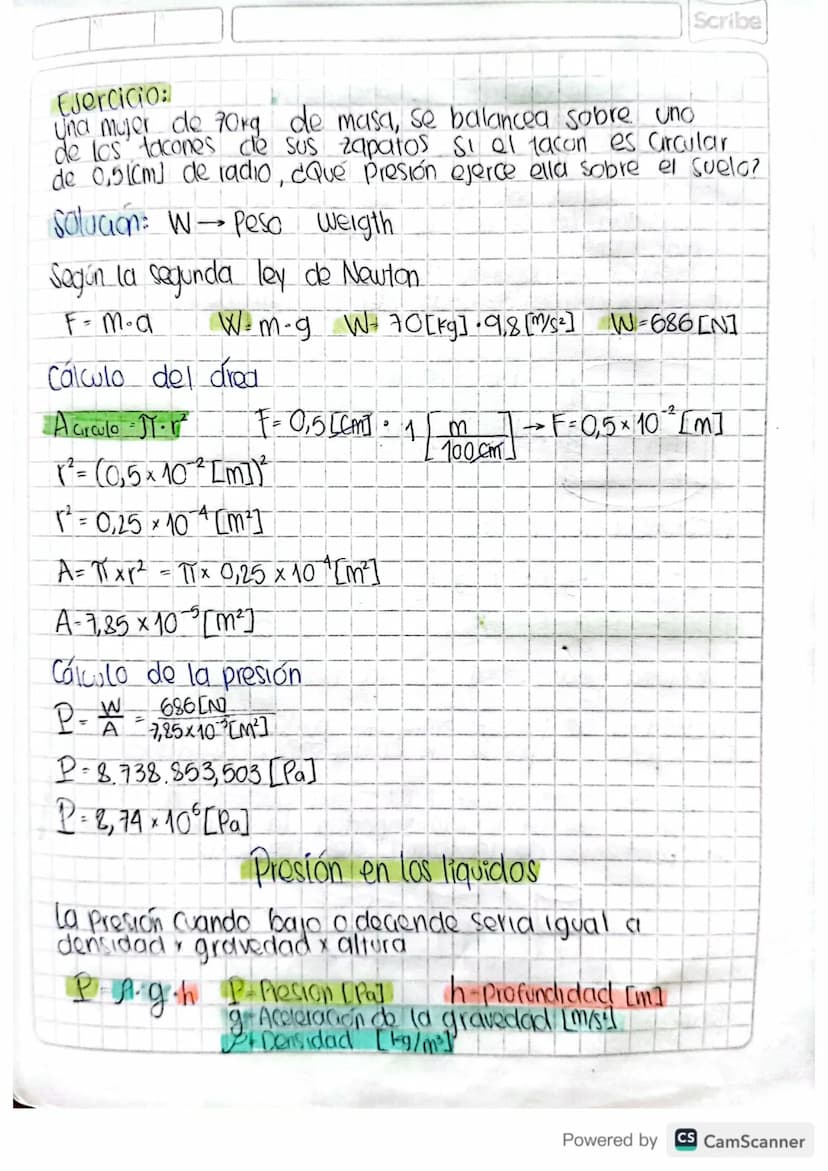 Scribe
Ejercicio:
Una mujer de 70kg de masa, se balancea sobre uno
de los tacones de sus zapatos si el tacon es circular
de 0,5[cm] de radio, ¿Qué presión ejerce ella sobre el suelo?
Solución: W → Peso Weigth
Según la segunda ley de Newton
F = m·a W = m·g W = 70[kg]·9,8[m/s²] W = 686[N]
Cálculo del área
A circulo = π·r² F = 0,5[cm] · 1 [m/100cm] → F = 0,5 × 10⁻² [m]
r² = (0,5 × 10⁻² [m])²
r² = 0,25 × 10⁻⁴ [m²]
A = π x r² = π x 0,25 x 10⁻⁴ [m²]
A = 7,85 × 10⁻⁵ [m²]
Cálculo de la presión
P = W/A = 686[N]/7,85×10⁻⁵[m²]
P = 8.738.853,503 [Pa]
P = 8,74 × 10⁶ [Pa]
Presión en los líquidos
La presión cuando bajo o decende seria igual a
densidad x gravedad x altura
P = ρ·g·h P = Presion [Pa] h = Profundidad [m]
g = Aceleración de la gravedad [m/s²]
ρ = Densidad [kg/m³]
Powered by CS CamScanner